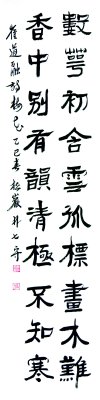 數萼初含雪孤標畫本難
香中別有韻清極不知寒
崔道融詩梅花乙巳春